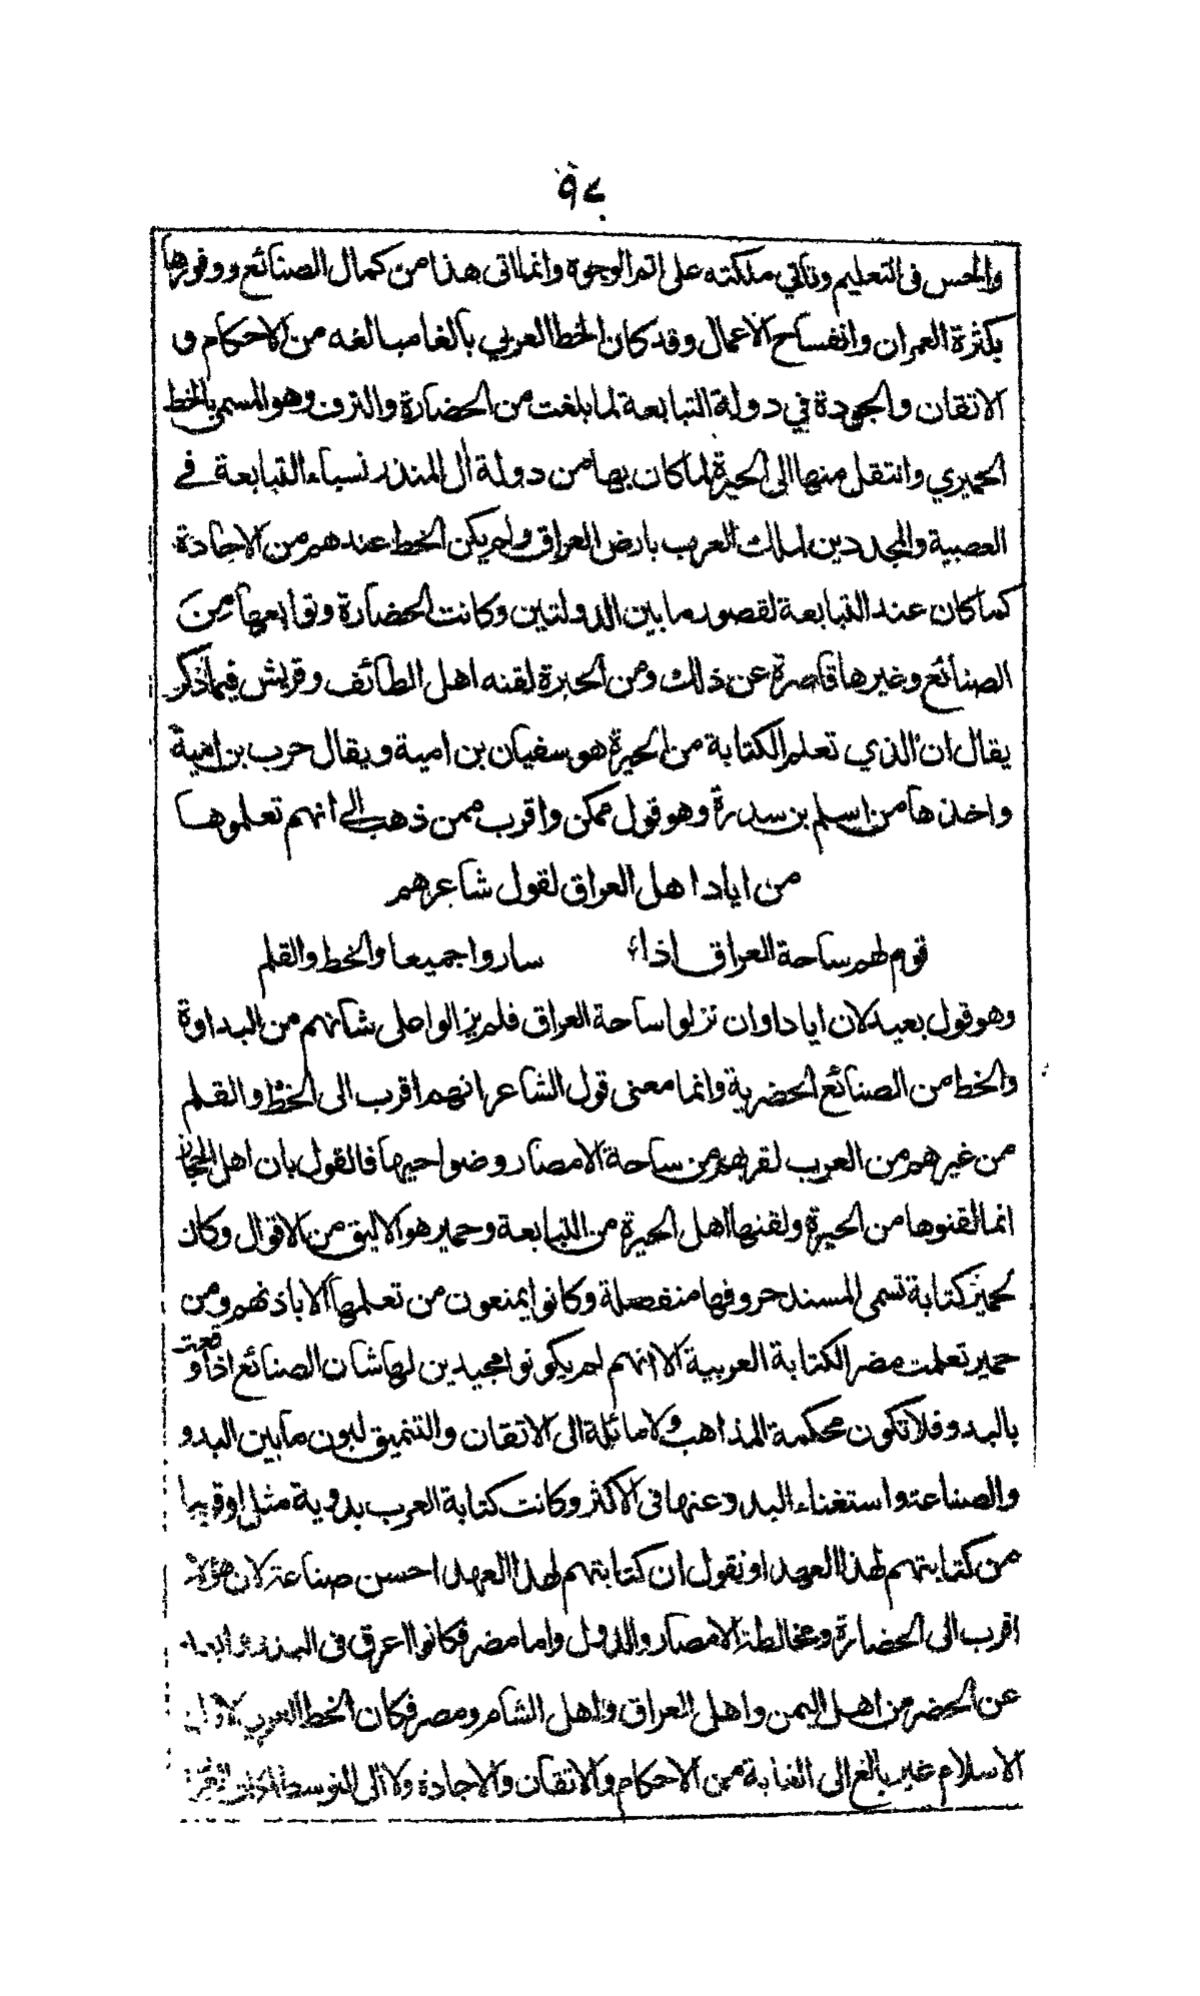 ٩٨
والحس فى التعليم وتأتي ملكته على اتم الوجوة وانما اتى هذا من كمال الصنائع ووفورها
بكثرة العمران وانفساح الاعمال وقد كان الخط العربي بالغا مبالغه من الاحكام و
الاتقان والجودة في دولة التبابعة لما بلغت من الحضارة والترف وهو المسمى بالخط
الحميري وانتقل منها الى الحيرة لما كان بها من دولة أل المنذر نسباء التبابعة في
العصبية والمجددين لملك العرب بارض العراق ولم يكن الخط عندهم من الاجادة
كما كان عند التبابعة لقصور ما بين الدولتين وكانت الحضارة وتوابعها من
الصنائع وغيرها قاصرة عن ذلك ومن الحيرة لقنه اهل الطائف وقريش فيما ذكر
يقال ان الذي تعلم الكتابة من الحيرة هو سفيان بن امية ويقال حرب بن امية
واخذها من اسلم بن سدرة وهو قول ممكن واقرب ممن ذهب الى انهم تعلموها
من اياد اهل العراق لقول شاعرهم
قوم لهم ساحة العراق اذاء ساروا جميعا والخط والقلم
وهو قول بعيد لان ايادا وان نزلوا ساحة العراق فلم يزالوا على شانهم من البداوة
والخط من الصنائع الحضرية وانما معنى قول الشاعر انهم اقرب الى الخط والقلم
من غيرهم من العرب لقربهم من ساحة الامصار وضواحيها فالقول بان اهل الحجاز
انما لقنوها من الحيرة ولقنها اهل الحيرة من التبابعة وحمير هو الاليق من الاقوال وكان
لحمير كتابة تسمى المسند حروفها منفصلة وكانوا يمنعون من تعلمها الا باذنهم ومن
حمير تعلمت مضر الكتابة العربية الا انهم لم يكونوا مجيدين لها شان الصنائع اذا وقعت
بالبدو فلا تكون محكمة المذاهب ولا مائلة الى الاتقان والتنميق لبون ما بين البدو
والصناعة واستغناء البدو عنها فى الاكثر وكانت كتابة العرب بدوية مثل او قريبا
من كتابتهم لهذا العهد او نقول ان كتابتهم لهذا العهد احسن صناعة لان هؤلاء
اقرب الى الحضارة ومخالطة الامصار والدول واما مضر فكانوا اعرق فى البدو وابعد
عن الحضر من اهل اليمن واهل العراق واهل الشام ومصر فكان الخط العربي لاول
الاسلام غير بالغ الى الغاية من الاحكام والاتقان والاجادة ولا الى التوسط لمكان العرب